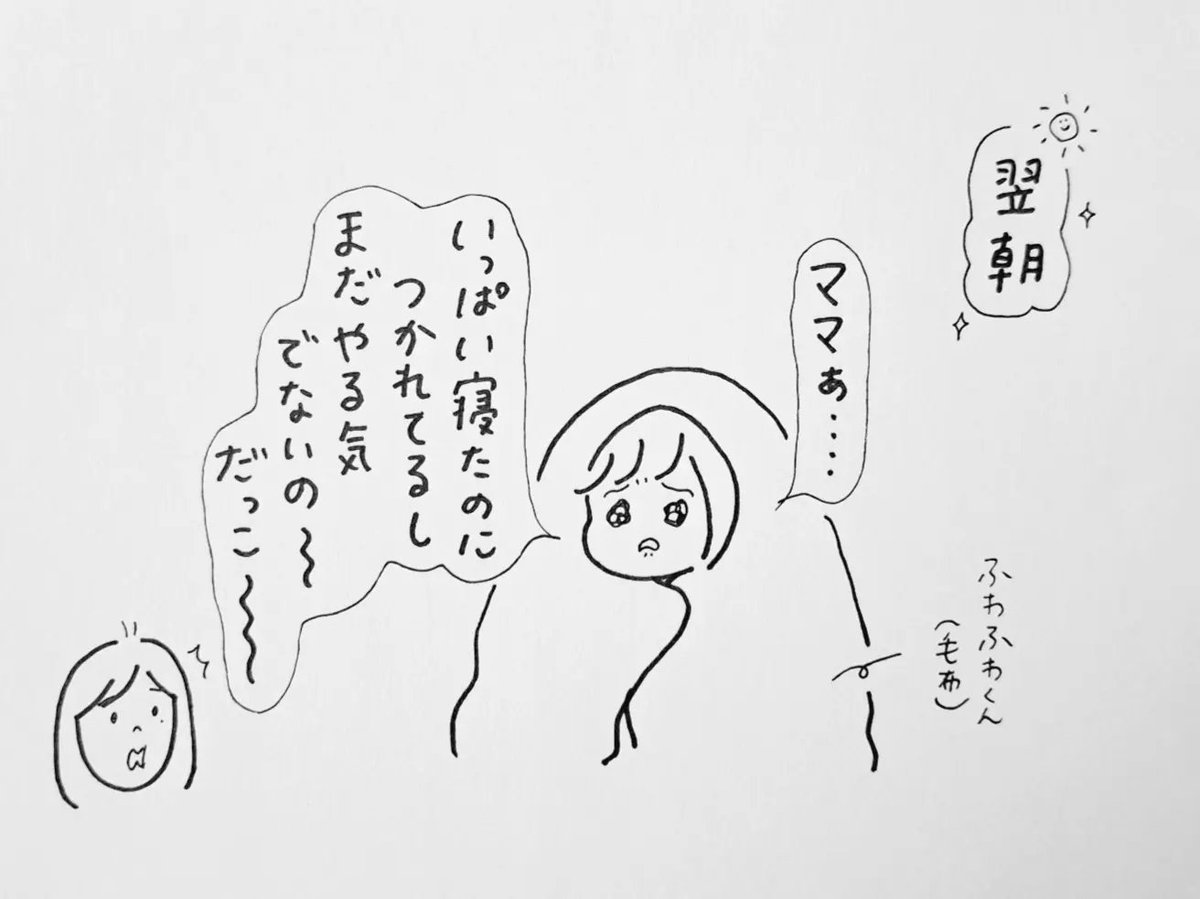 翌朝
ママぁ・・・・・
いっぱい寝たのに
つかれてるし
まだやる気
でないの〜
だっこ〜〜
ふわふわくん
(毛布)